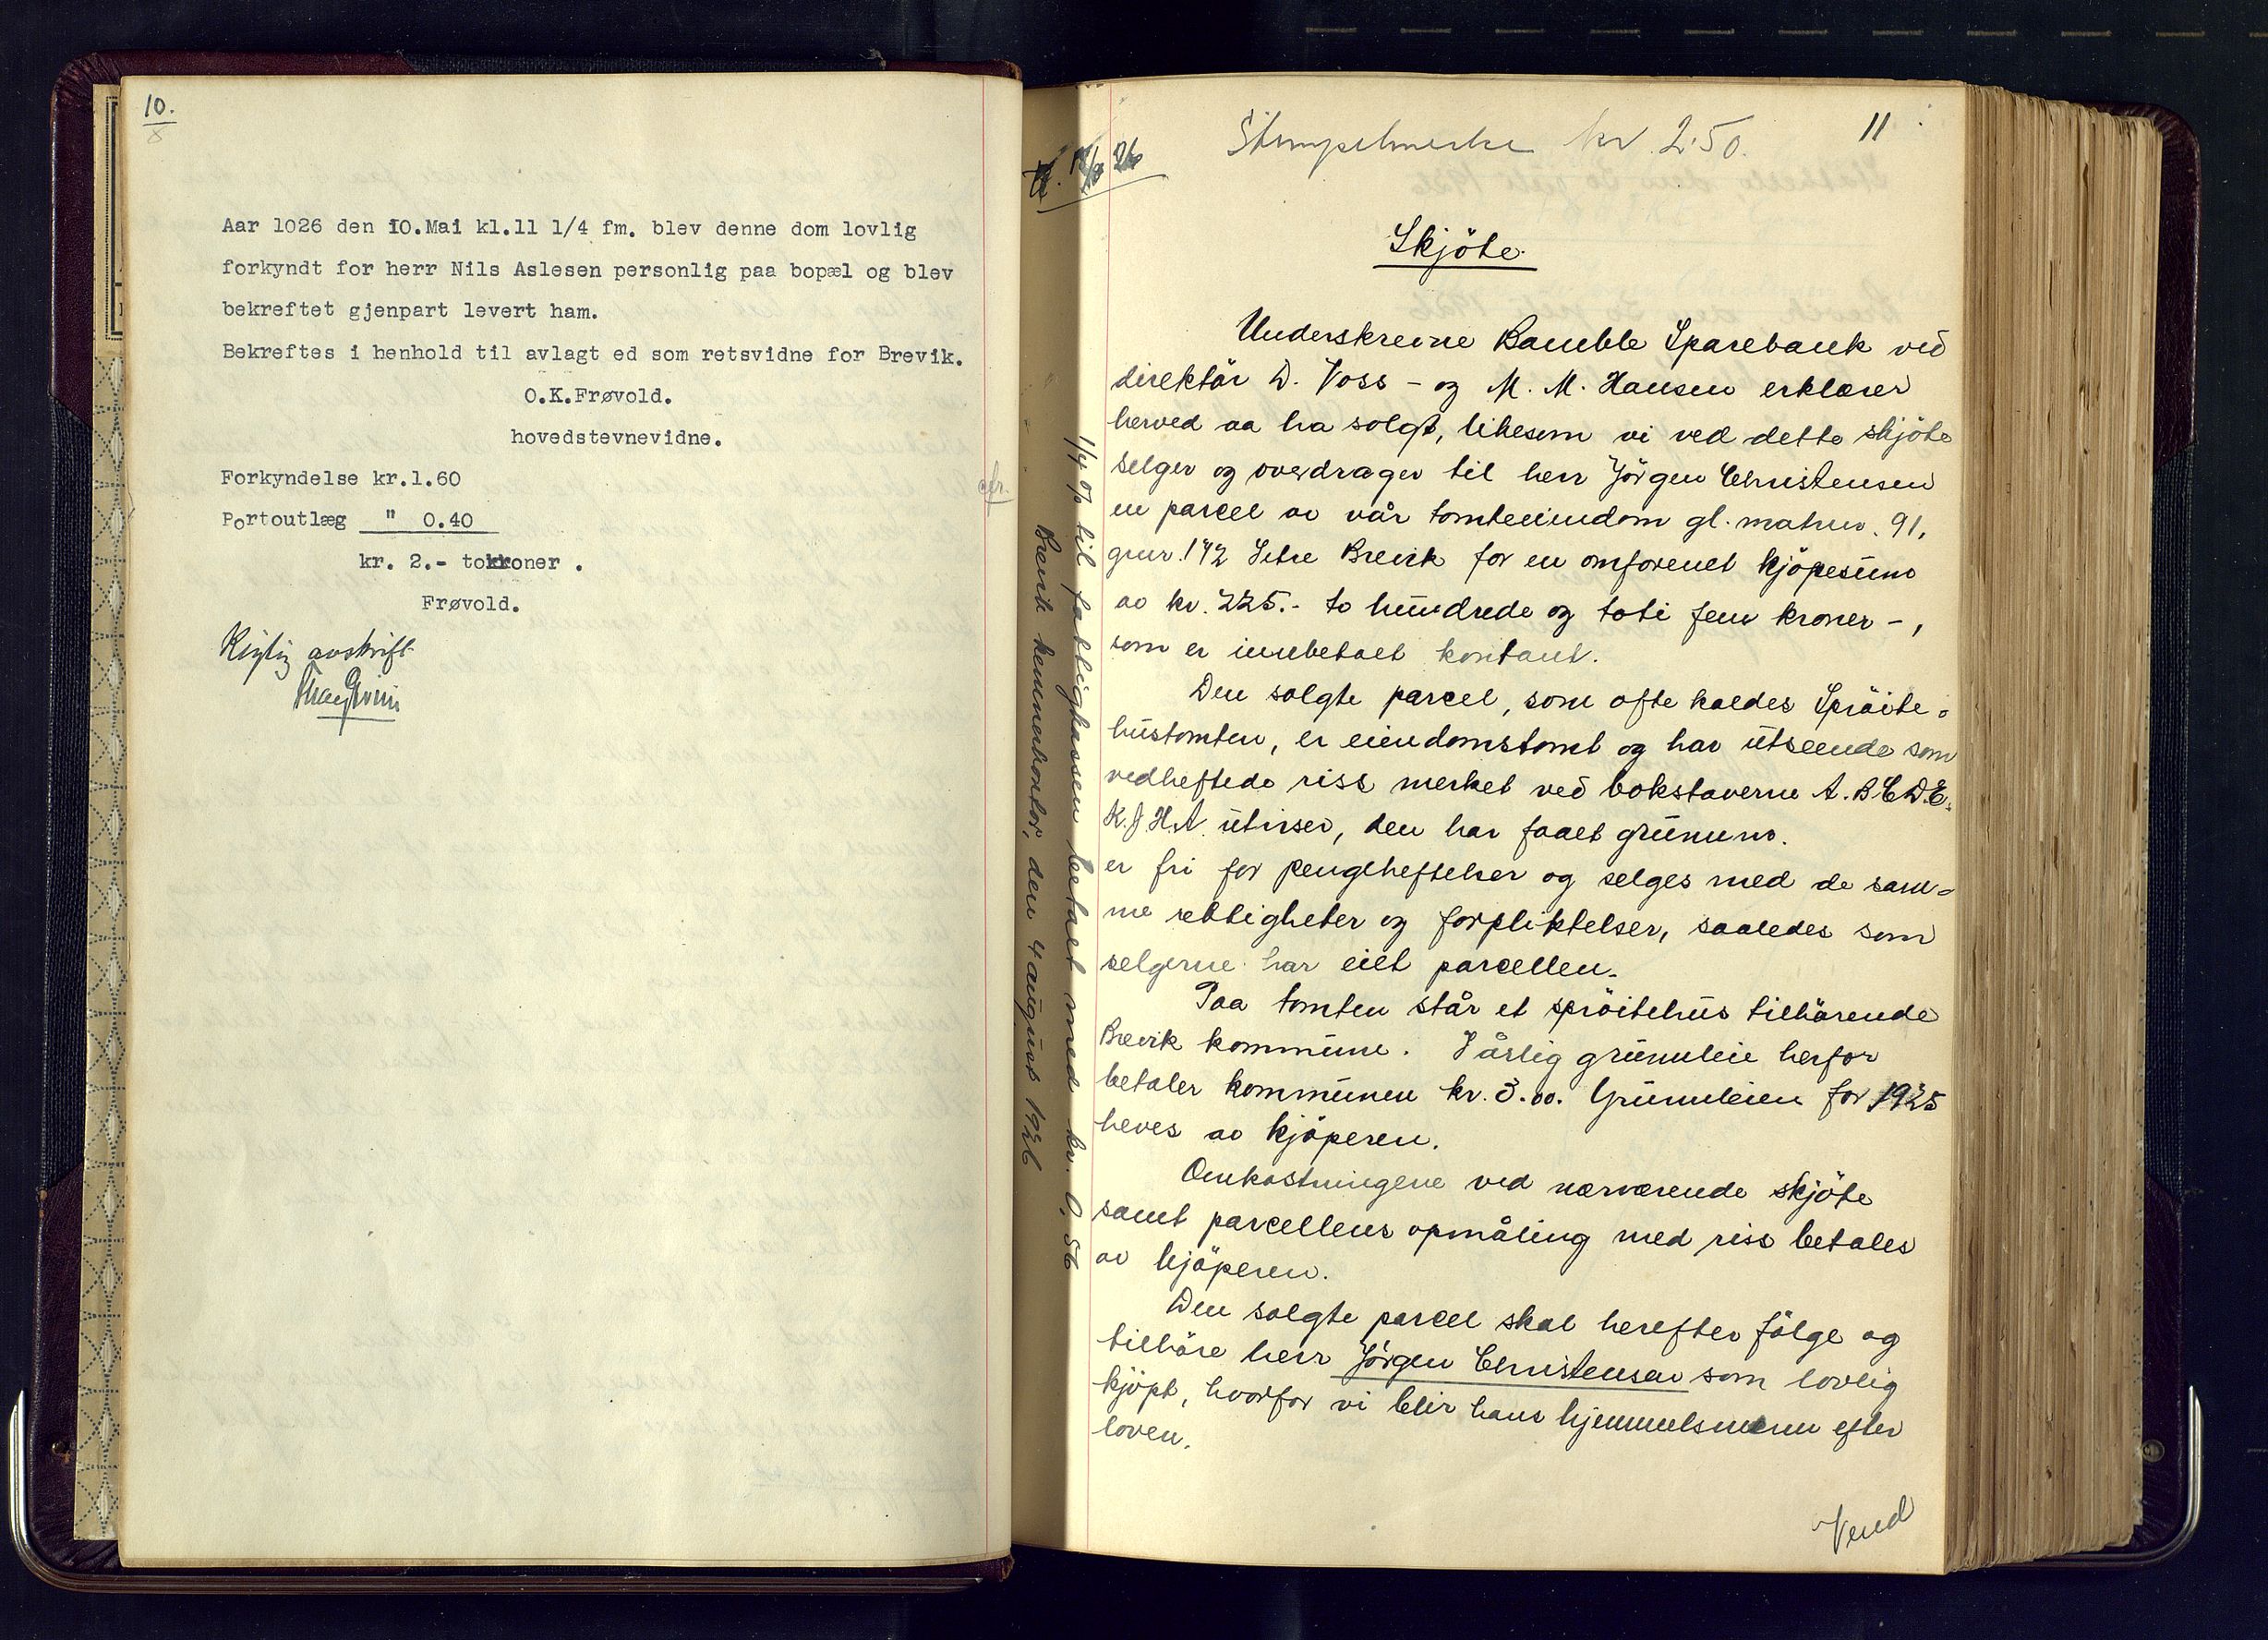 10.
Aar 1026 den 10.Mai kl.11 1/4 fm. blev denne dom lovlig
forkyndt for herr Nils Aslesen personlig paa bopæl og blev
bekreftet gjenpart levert ham.
Bekreftes i henhold til avlagt ed som retsvidne for Brevik.
O.K.Frøvold.
hovedstevnevidne.
Forkyndelse kr.1.60
Portoutlæg " 0.40
kr. 2.- tokroner .
Frøvold.
Rigtig avskrift
11
Stempelmerke kr 2.50.
Skjöte.
Underskrevne Bamble Sparebank ved
direktör D. Voss - og M. M. Hansen erklærer
herved aa ha solgt, likesom vi ved dette skjöte
selger og overdrager til herr Jörgen Christensen
en parcel av vår tomteeiendom gl. matr.nr. 91,
gnr. 172 Setre Brevik for en omforenet kjöpesum
av kr. 225.- to hundrede og toti fem kroner -,
som er innbetalt kontant.
Den solgte parcel, som ofte kaldes Spröite-
hustomten, er eiendomstomt og har utseende som
vedheftede riss merket ved bokstaverne A.B.C.D.E.
K.J.H.A. utviser, den har faaet grunnnr.
er fri for pengeheftelser og selges med de sam-
me rettigheter og forpliktelser, saaledes som
selgerne har eiet parcellen.
Paa tomten står et spröitehus tilhörende
Brevik kommune. I årlig grunnleie herfor
betaler kommunen kr. 3.00. Grunnleien for 1925
heves av kjöperen.
Omkostningene ved nærværende skjöte
samt parcellens opmåling med riss betales
av kjöperen.
Den solgte parcel skal herefter fölge og
tilhöre herr Jörgen Christensen som lovlig
kjöpt, hvorfor vi blir hans hjemmelsmenn efter
loven.
Vend
1/4 % til fattigkassen betalt med kr. 0,56
Brevik kemnerkontor, den 4 august 1926